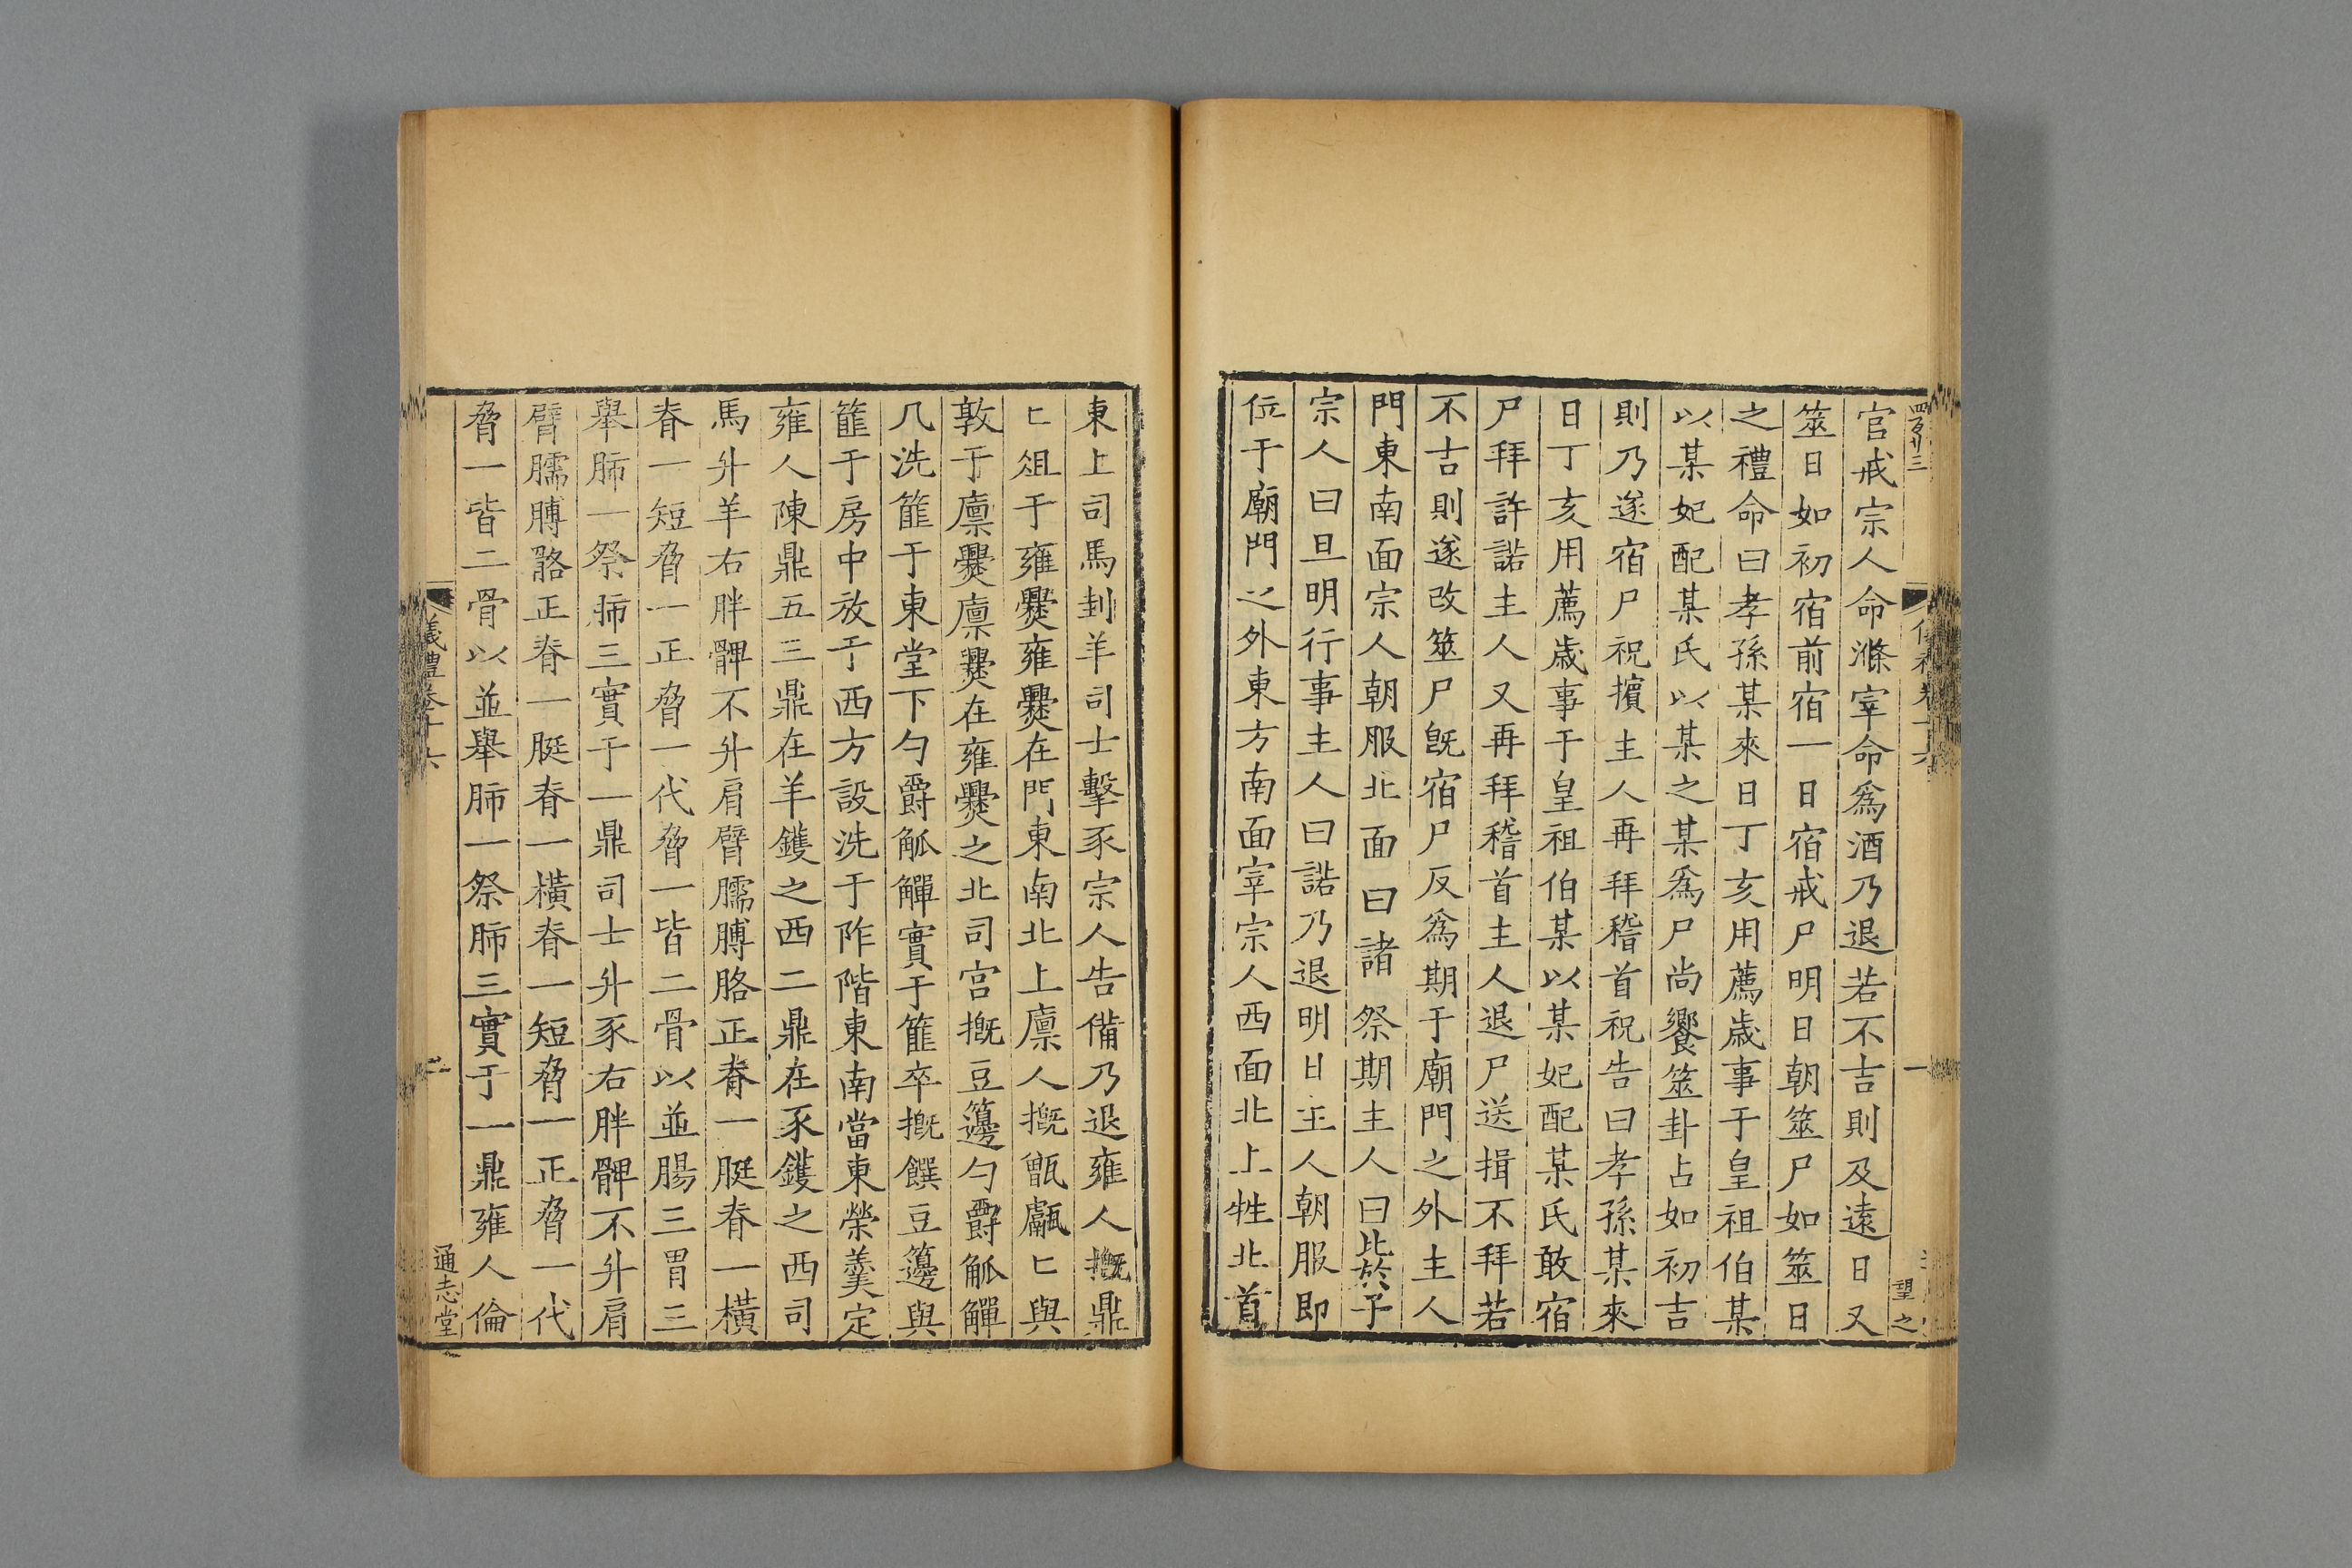 官戒宗人命滌宰命爲酒乃退若不吉則及遠日又
筮日如初宿前宿一日宿戒尸明日朝筮尸如筮日
之禮命曰孝孫某來日丁亥用薦歲事于皇祖伯某
以某妃配某氏以某之某爲尸尚饗筮卦占如初吉
則乃遂宿尸祝擯主人再拜稽首祝告曰孝孫某來
日丁亥用薦歲事于皇祖伯某以某妃配某氏敢宿
尸拜許諾主人又再拜稽首主人退尸送揖不拜若
不吉則遂改筮尸旣宿尸反爲期于廟門之外主人
門東南面宗人朝服北面曰諸祭期主人曰比於子
宗人曰旦明行事主人曰諾乃退明日主人朝服即
位于廟門之外東方南面宰宗人西面北上牲北首
望之
東上司馬刲羊司士擊豕宗人告備乃退雍人摡鼎
匕俎于雍爨雍爨在門東南北上廩人摡甑甗匕與
敦于廩爨廩爨在雍爨之北司宮摡豆籩勺爵觚觶
几洗篚于東堂下勺爵觚觶實于篚卒摡饌豆籩與
篚于房中放于西方設洗于阼階東南當東榮羹定
雍人陳鼎五三鼎在羊鑊之西二鼎在豕鑊之西司
馬升羊右胖髀不升肩臂臑膊胳正脊一脡脊一橫
脊一短脅一正脅一代脅一皆二骨以並腸三胃三
舉肺一祭肺三實于一鼎司士升豕右胖髀不升肩
臂臑膊骼正脊一脡脊一橫脊一短脅一正脅一代
脅一皆二骨以並舉肺一祭肺三實于一鼎雍人倫
儀禮卷十六
二
通志堂